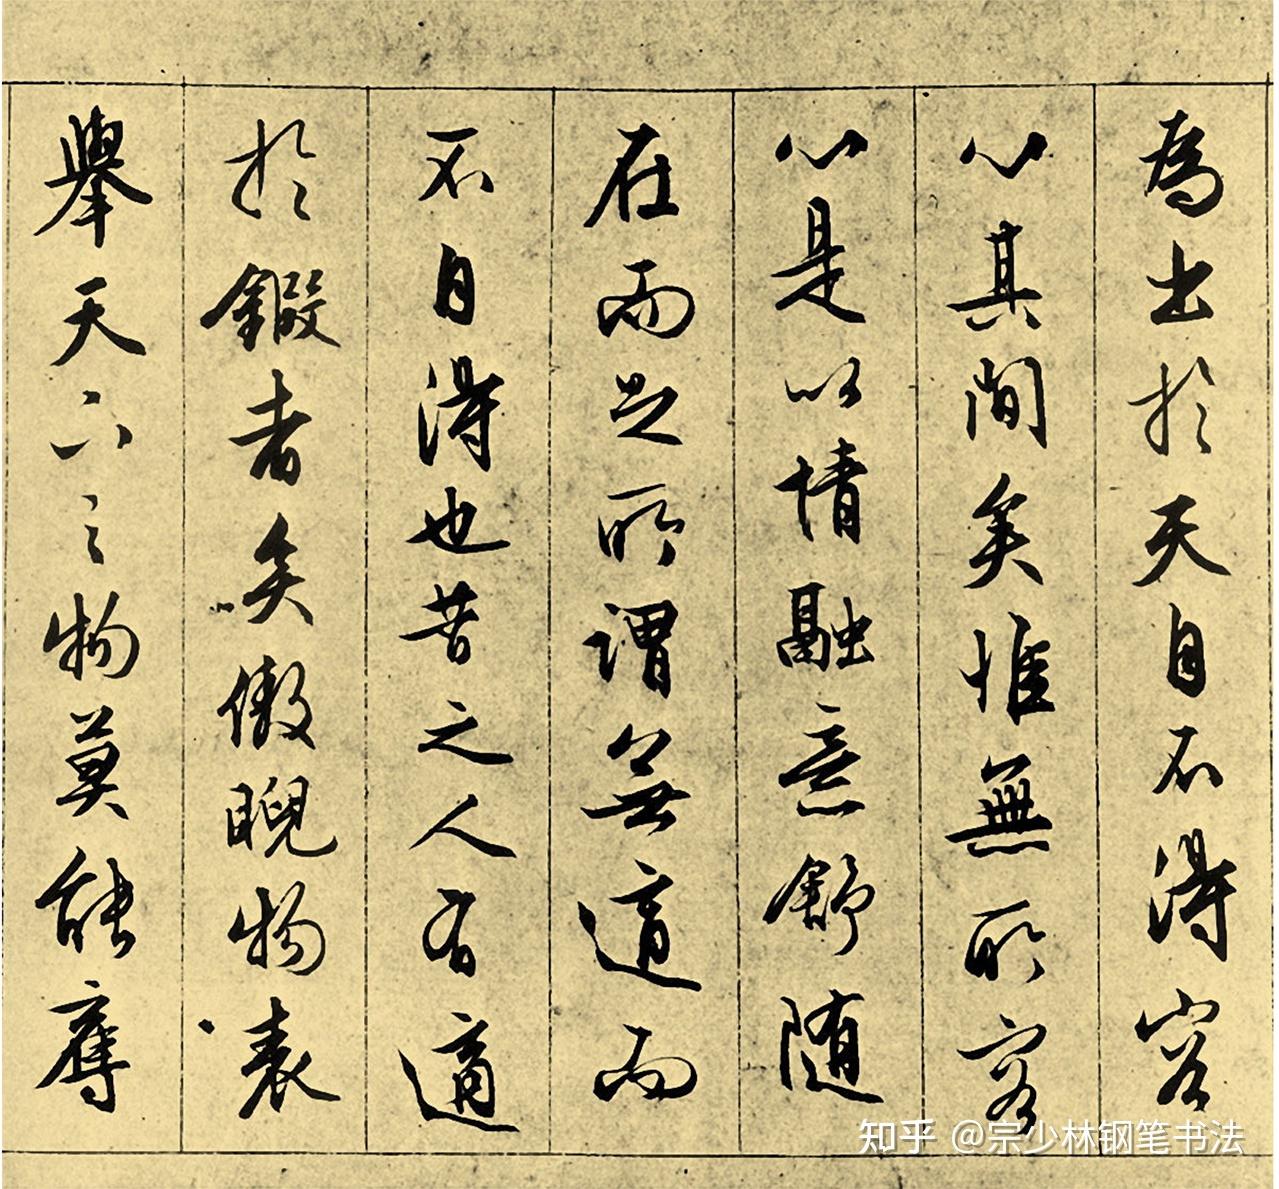 為出於天自不得容
心其間矣惟無所容
心是以情融意舒随
在而足所謂無適而
不自得也昔之人有適
於鍜者矣傲睨物表
舉天下之物莫能奪
知乎 @宗少林钢笔书法